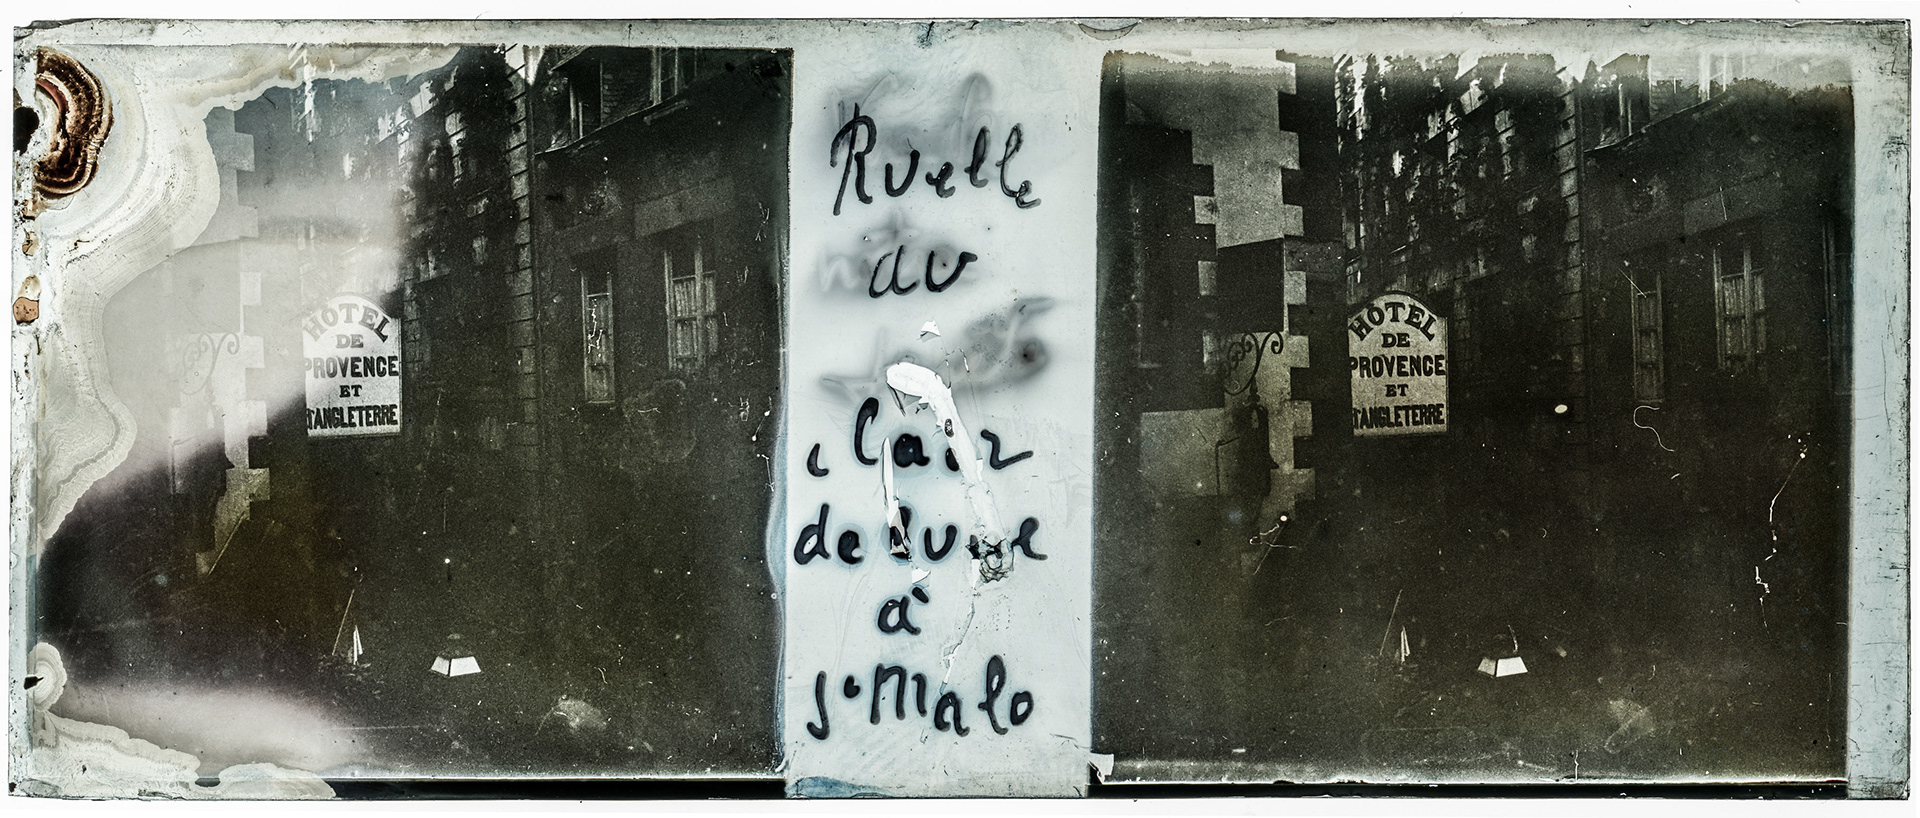 HÔTEL
DE
PROVENCE
ET
D'ANGLETERRE
Ruelle
du
Clair
de lune
à
St Malo
HÔTEL
DE
PROVENCE
ET
D'ANGLETERRE